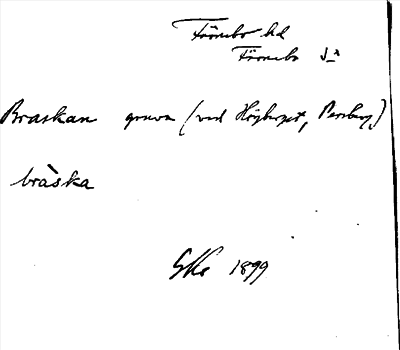 Färnebo hd
Färnebo sn
Braskan gruva (vid Högberget, Persberg)
bràska
GKs 1899